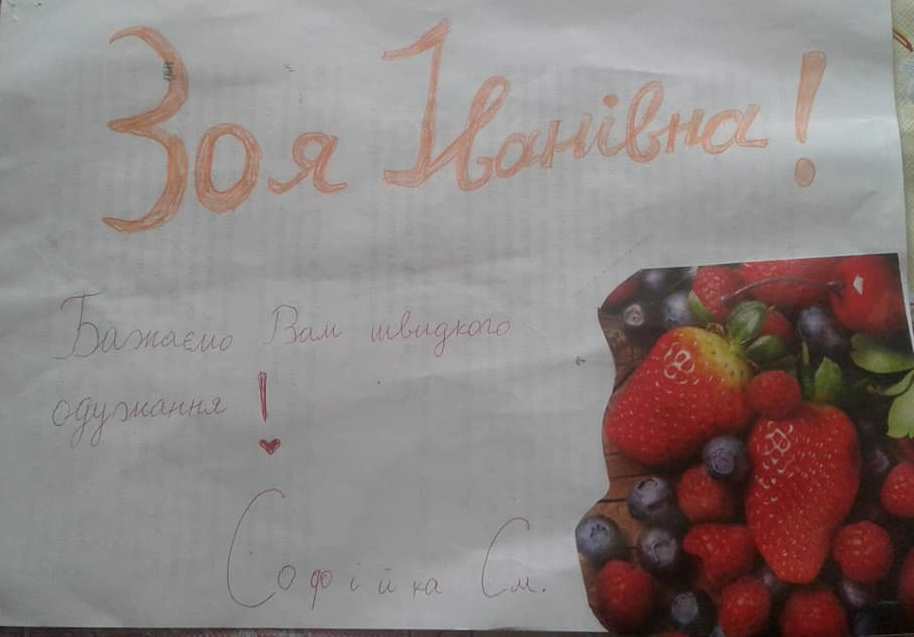 Зоя Іванівна!
Бажаємо Вам швидкого
одужання!
Софійка См.